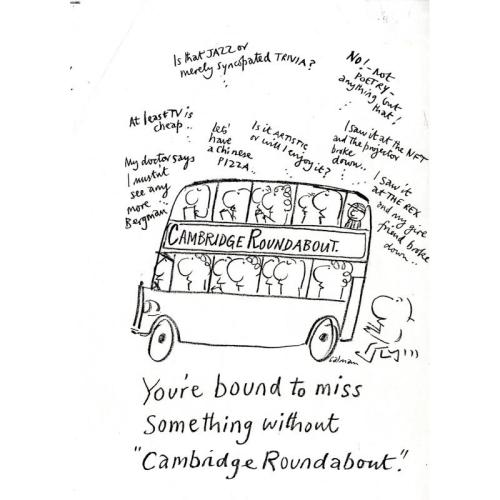 Is that JAZZ or
merely syncopated TRIVIA?
No! - not
POETRY -
anything but
that!
At least TV is
cheap..
let's
have
a Chinese
PIZZA..
Is it ARTISTIC
or will I enjoy it?
I saw it at the NFT
and the projector
broke
down..
My doctor says
I mustnt
see any
more
Bergman..
I saw it
at THE REX
and my girl
friend broke
down..
CAMBRIDGE ROUNDABOUT.
salman
You're bound to miss
Something without
"Cambridge Roundabout".